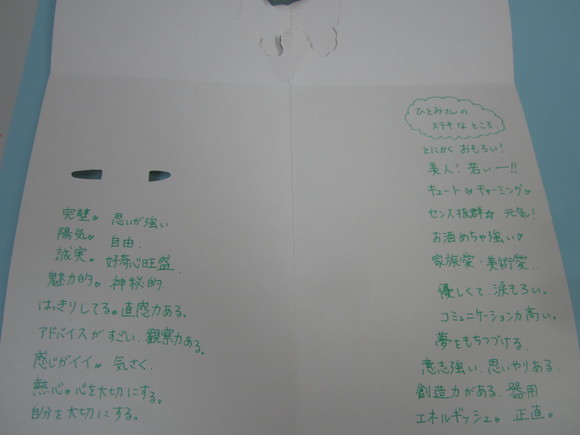 ひとみさんの
ステキなところ
とにかくおもろい!
美人!若いー!!
キュート チャーミング
センス抜群☆ 元気!
お酒めちゃ強い
家族愛・美術愛...
優しくて、涙もろい。
コミュニケーション力高い。
夢をもちつづける
意志強い、思いやりある
創造力がある 器用
エネルギッシュ。 正直。
完璧。 思いが強い
陽気 自由.
誠実。 好奇心旺盛.
魅力的。 神秘的.
はっきりしてる。直感力ある。
アドバイスがすごい.観察力ある。
感じがイイ。 気さく.
熱心。心を大切にする。
自分を大切にする。